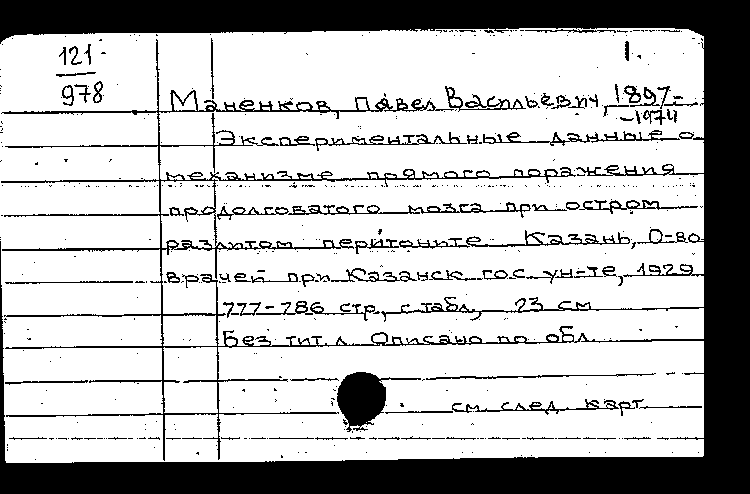 121
978
1.
Маненков, Павел Васильевич, 1897-
-1974
Экспериментальные данные о
механизме прямого поражения
продолговатого мозга при остром
разлитом перитоните. Казань, О-во
врачей при Казанск. гос. ун-те, 1929
777-786 стр., с табл., 23 см.
Без тит. л. Описано по обл.
см. след. карт.